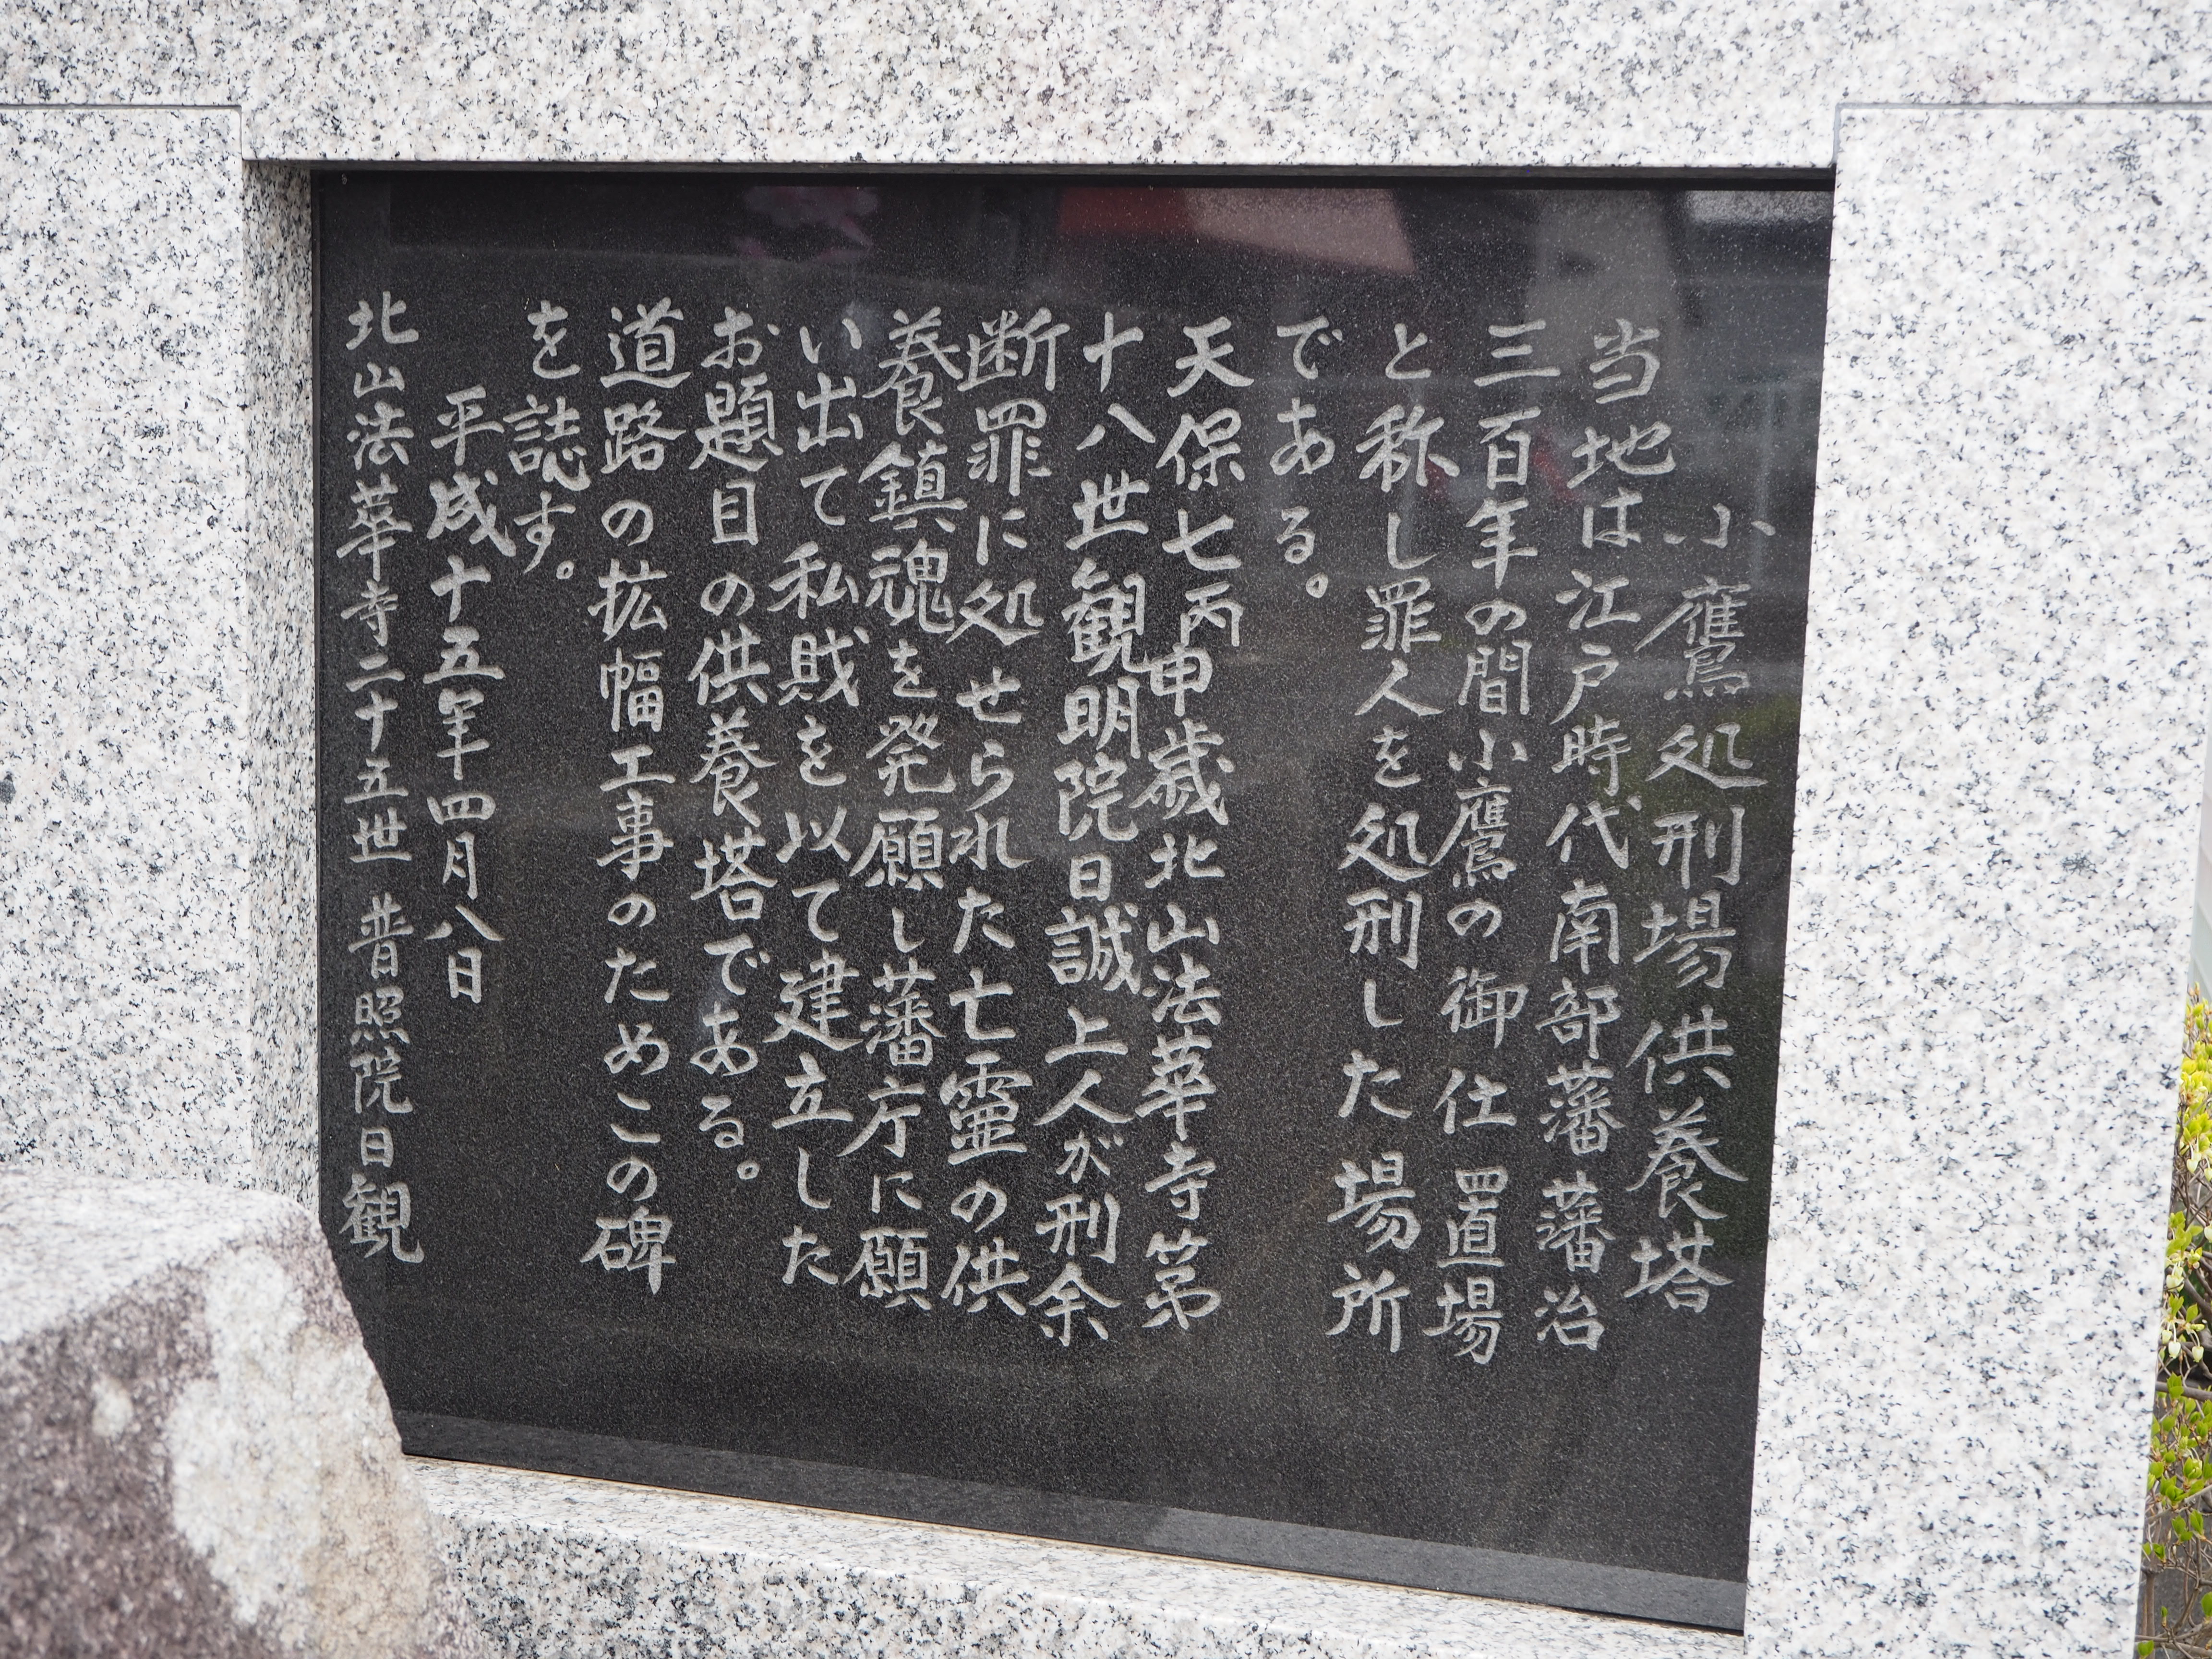 小鷹処刑場供養塔
当地は江戸時代南部藩藩治
三百年の間小鷹の御仕置場
と称し罪人を処刑した場所
である。
天保七丙申歳北山法華寺第
十八世観明院日誠上人が刑余
断罪に処せられた亡霊の供
養鎮魂を発願し藩庁に願
い出て私財を以て建立した
お題目の供養塔である。
道路の拡幅工事のためこの碑
を誌す。
平成十五年四月八日
北山法華寺二十五世 普照院日観